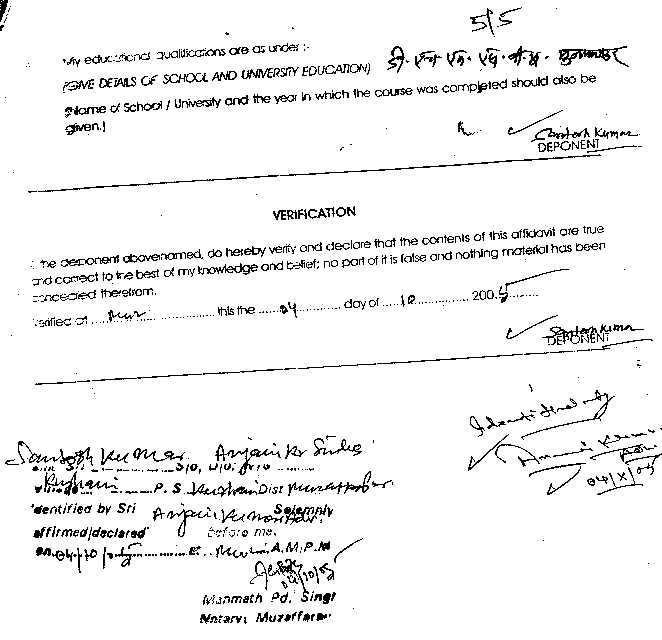 5/5
My educational qualifications are as under :-
(GIVE DETAILS OF SCHOOL AND UNIVERSITY EDUCATION)
(Name of School / University and the year in which the course was completed should also be
given.)
Santosh Kumar
DEPONENT
VERIFICATION
I, the deponent abovenamed, do hereby verify and declare that the contents of this affidavit are true
and correct to the best of my knowledge and belief; no part of it is false and nothing material has been
concealed therefrom.
Verified at ..... Muz ..... this the ..... 04 ..... day of ..... 10 ..... 2005 .....
Santosh Kumar
DEPONENT
Identified by
04/X/05
Santosh Kumar Anjani Kr Sinha
S/O, W/O, D/O
Kurhani P. S Kurhani Dist Muzaffarpur
Identified by Sri Anjani Kumar Solemnly
affirmed/declared before me.
on 04/10/05 A.M, P.M
04/10/05
Manmath Pd. Singh
Notary, Muzaffarpur